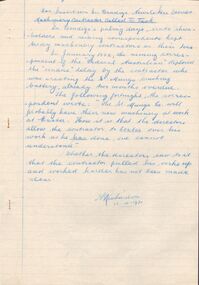 For Insertion in Bendigo Newsletter Series
Machinery Contractor Called to Task
In Bendigo's palmy days, irate share-
holders and mining correspondents kept
machinery contractors on their toes
In February 1880, the mining corres-
pondent of the "Federal Australian" deplored
the "undue" delay by the contractor who
was erecting the St Mungo crushing
battery, already two months overdue.
The following fortnight the corres-
pondent wrote: "The St Mungo Co. will
probably have their new machinery at work
at Easter. How it is that the directors
allow the contractor to loaf over his
work as he has done, we cannot
understand."
Whether the directors saw to it
that the contractor pulled his socks up
and worked harder has not been made
clear.
A Richardson